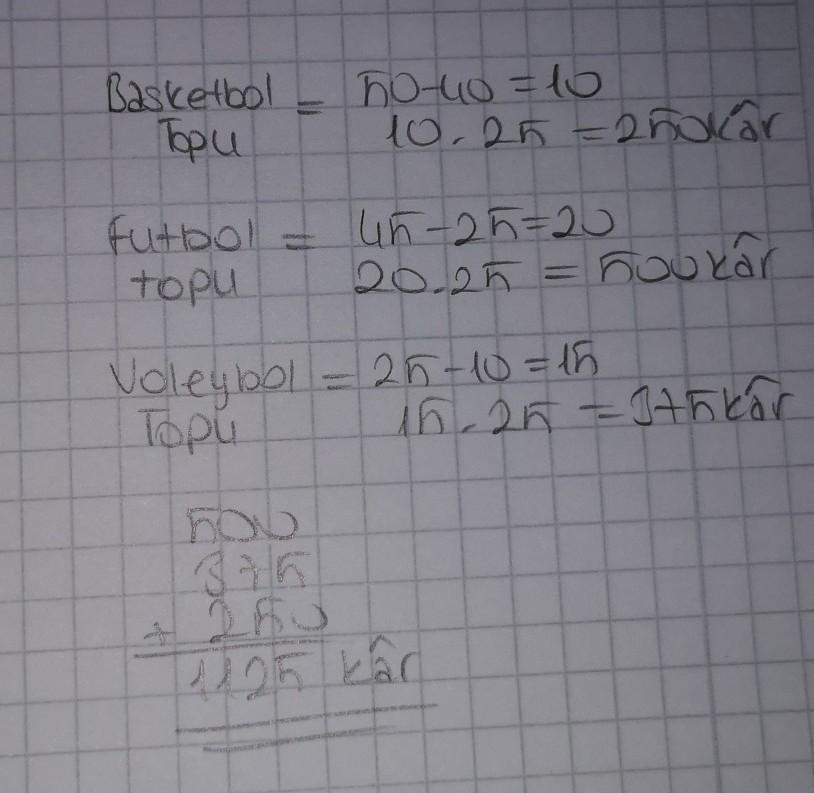 Basketbol = 50-40=10
Topu 10.25=250kâr
futbol = 45-25=20
topu 20.25=500kâr
Voleybol = 25-10=15
Topu 15.25=375kâr
500
375
+ 250
1125 kâr